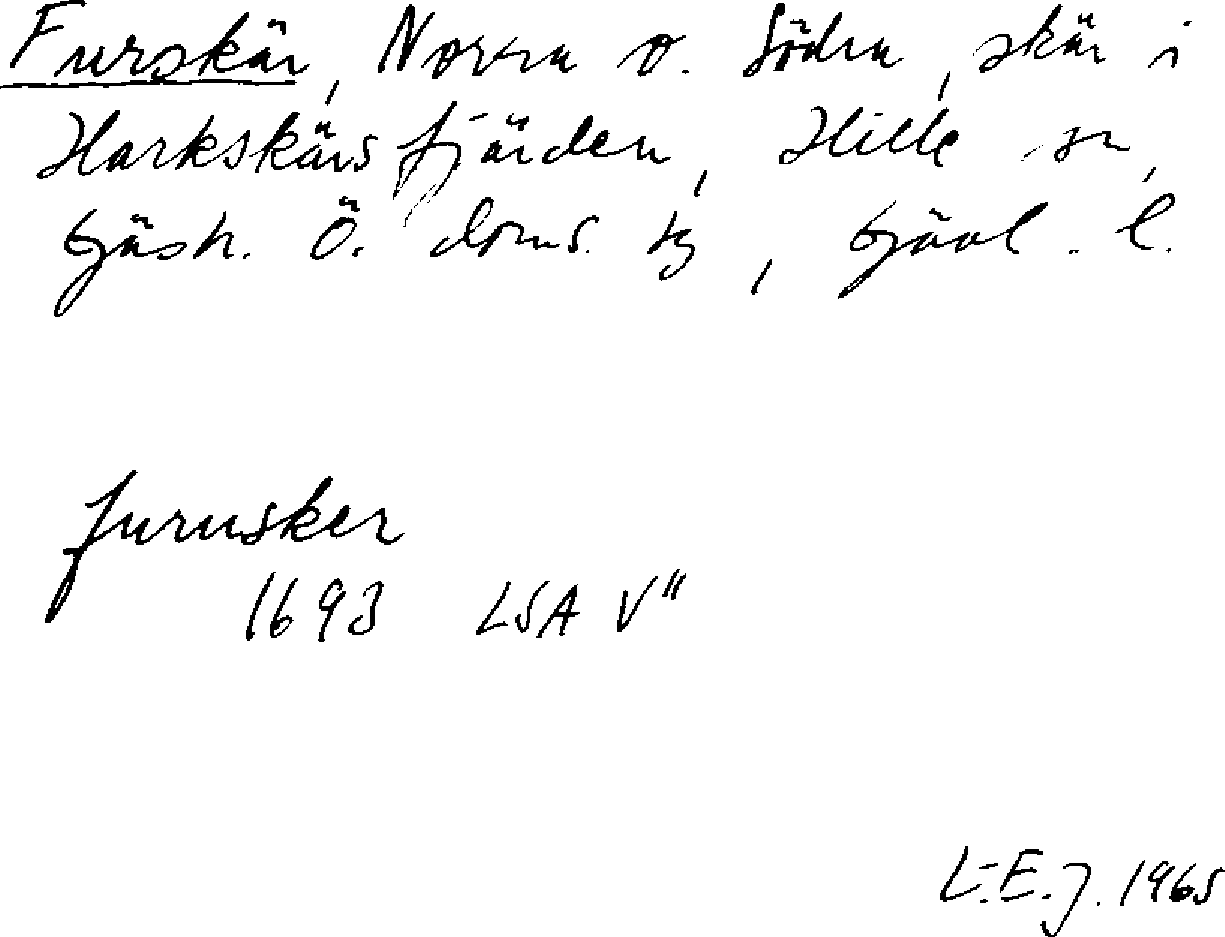 Furskär, Norra o. Södra, skär i
Harkskärsfjärden, Hille sn,
Gästr. Ö. doms. tg, Gävl. l.
furusker
1693 LSA V"
L-E.J. 1965